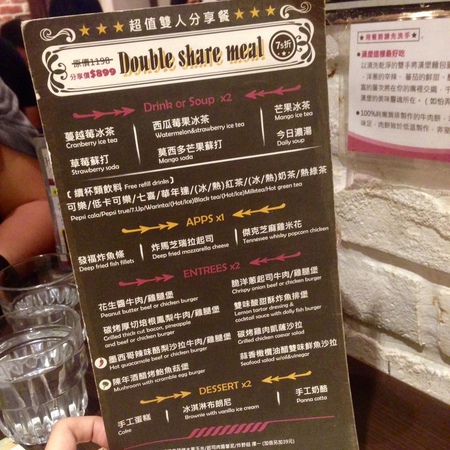 超值雙人分享餐
原價1198
分享價$899
Double share meal
75折
Drink or Soup x2
蔓越莓冰茶
Cranberry ice tea
西瓜莓果冰茶
Watermelon&strawberry ice tea
芒果冰茶
Mango ice tea
草莓蘇打
Strawberry soda
莫西多芒果蘇打
Mango soda
今日濃湯
Daily soup
[ 續杯類飲料 Free refill drinks ]
可樂/低卡可樂/七喜/華年達/(冰/熱)紅茶/(冰/熱)奶茶/熱綠茶
Pepsi cola/Pepsi true/7.Up/Warinta/(Hot/Ice)Black tea/(Hot/Ice)Milktea/Hot green tea
APPS x1
發福炸魚條
Deep fried fish fillets
炸馬芝瑞拉起司
Deep fried mozzarella cheese
傑克芝麻雞米花
Tennessee whisky popcorn chicken
ENTREES x2
花生醬牛肉/雞腿堡
Peanut butter beef or chicken burger
脆洋蔥起司牛肉/雞腿堡
Chrispy onion beef or chicken burger
碳烤厚切培根鳳梨牛肉/雞腿堡
Grilled thick cut bacon, pineapple
and beef or chicken burger
雙味酸甜酥炸魚排堡
Lemon tartar dressing &
cocktail sauce with dolly fish burger
墨西哥辣味酪梨沙拉牛肉/雞腿堡
Hot guacamole beef or chicken burger
碳烤雞肉凱薩沙拉
Grilled chicken caesar salad
陳年酒醋烤鮑魚菇堡
Mushroom with scramble egg burger
蒜香橄欖油醋雙味鮮魚沙拉
Seafood salad w/oil&vinegar
DESSERT x2
手工蛋糕
Cake
冰淇淋布朗尼
Brownie with vanilla ice cream
手工奶酪
Panna cotta